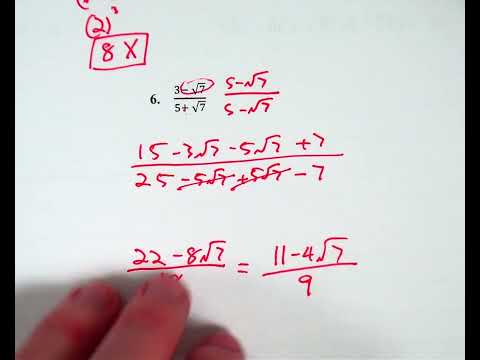 (2)³
8 X
6. 3 - √7 / 5 + √7 5 - √7 / 5 - √7
15 - 3√7 - 5√7 + 7
25 - 5√7 + 5√7 - 7
22 - 8√7 = 11 - 4√7
9